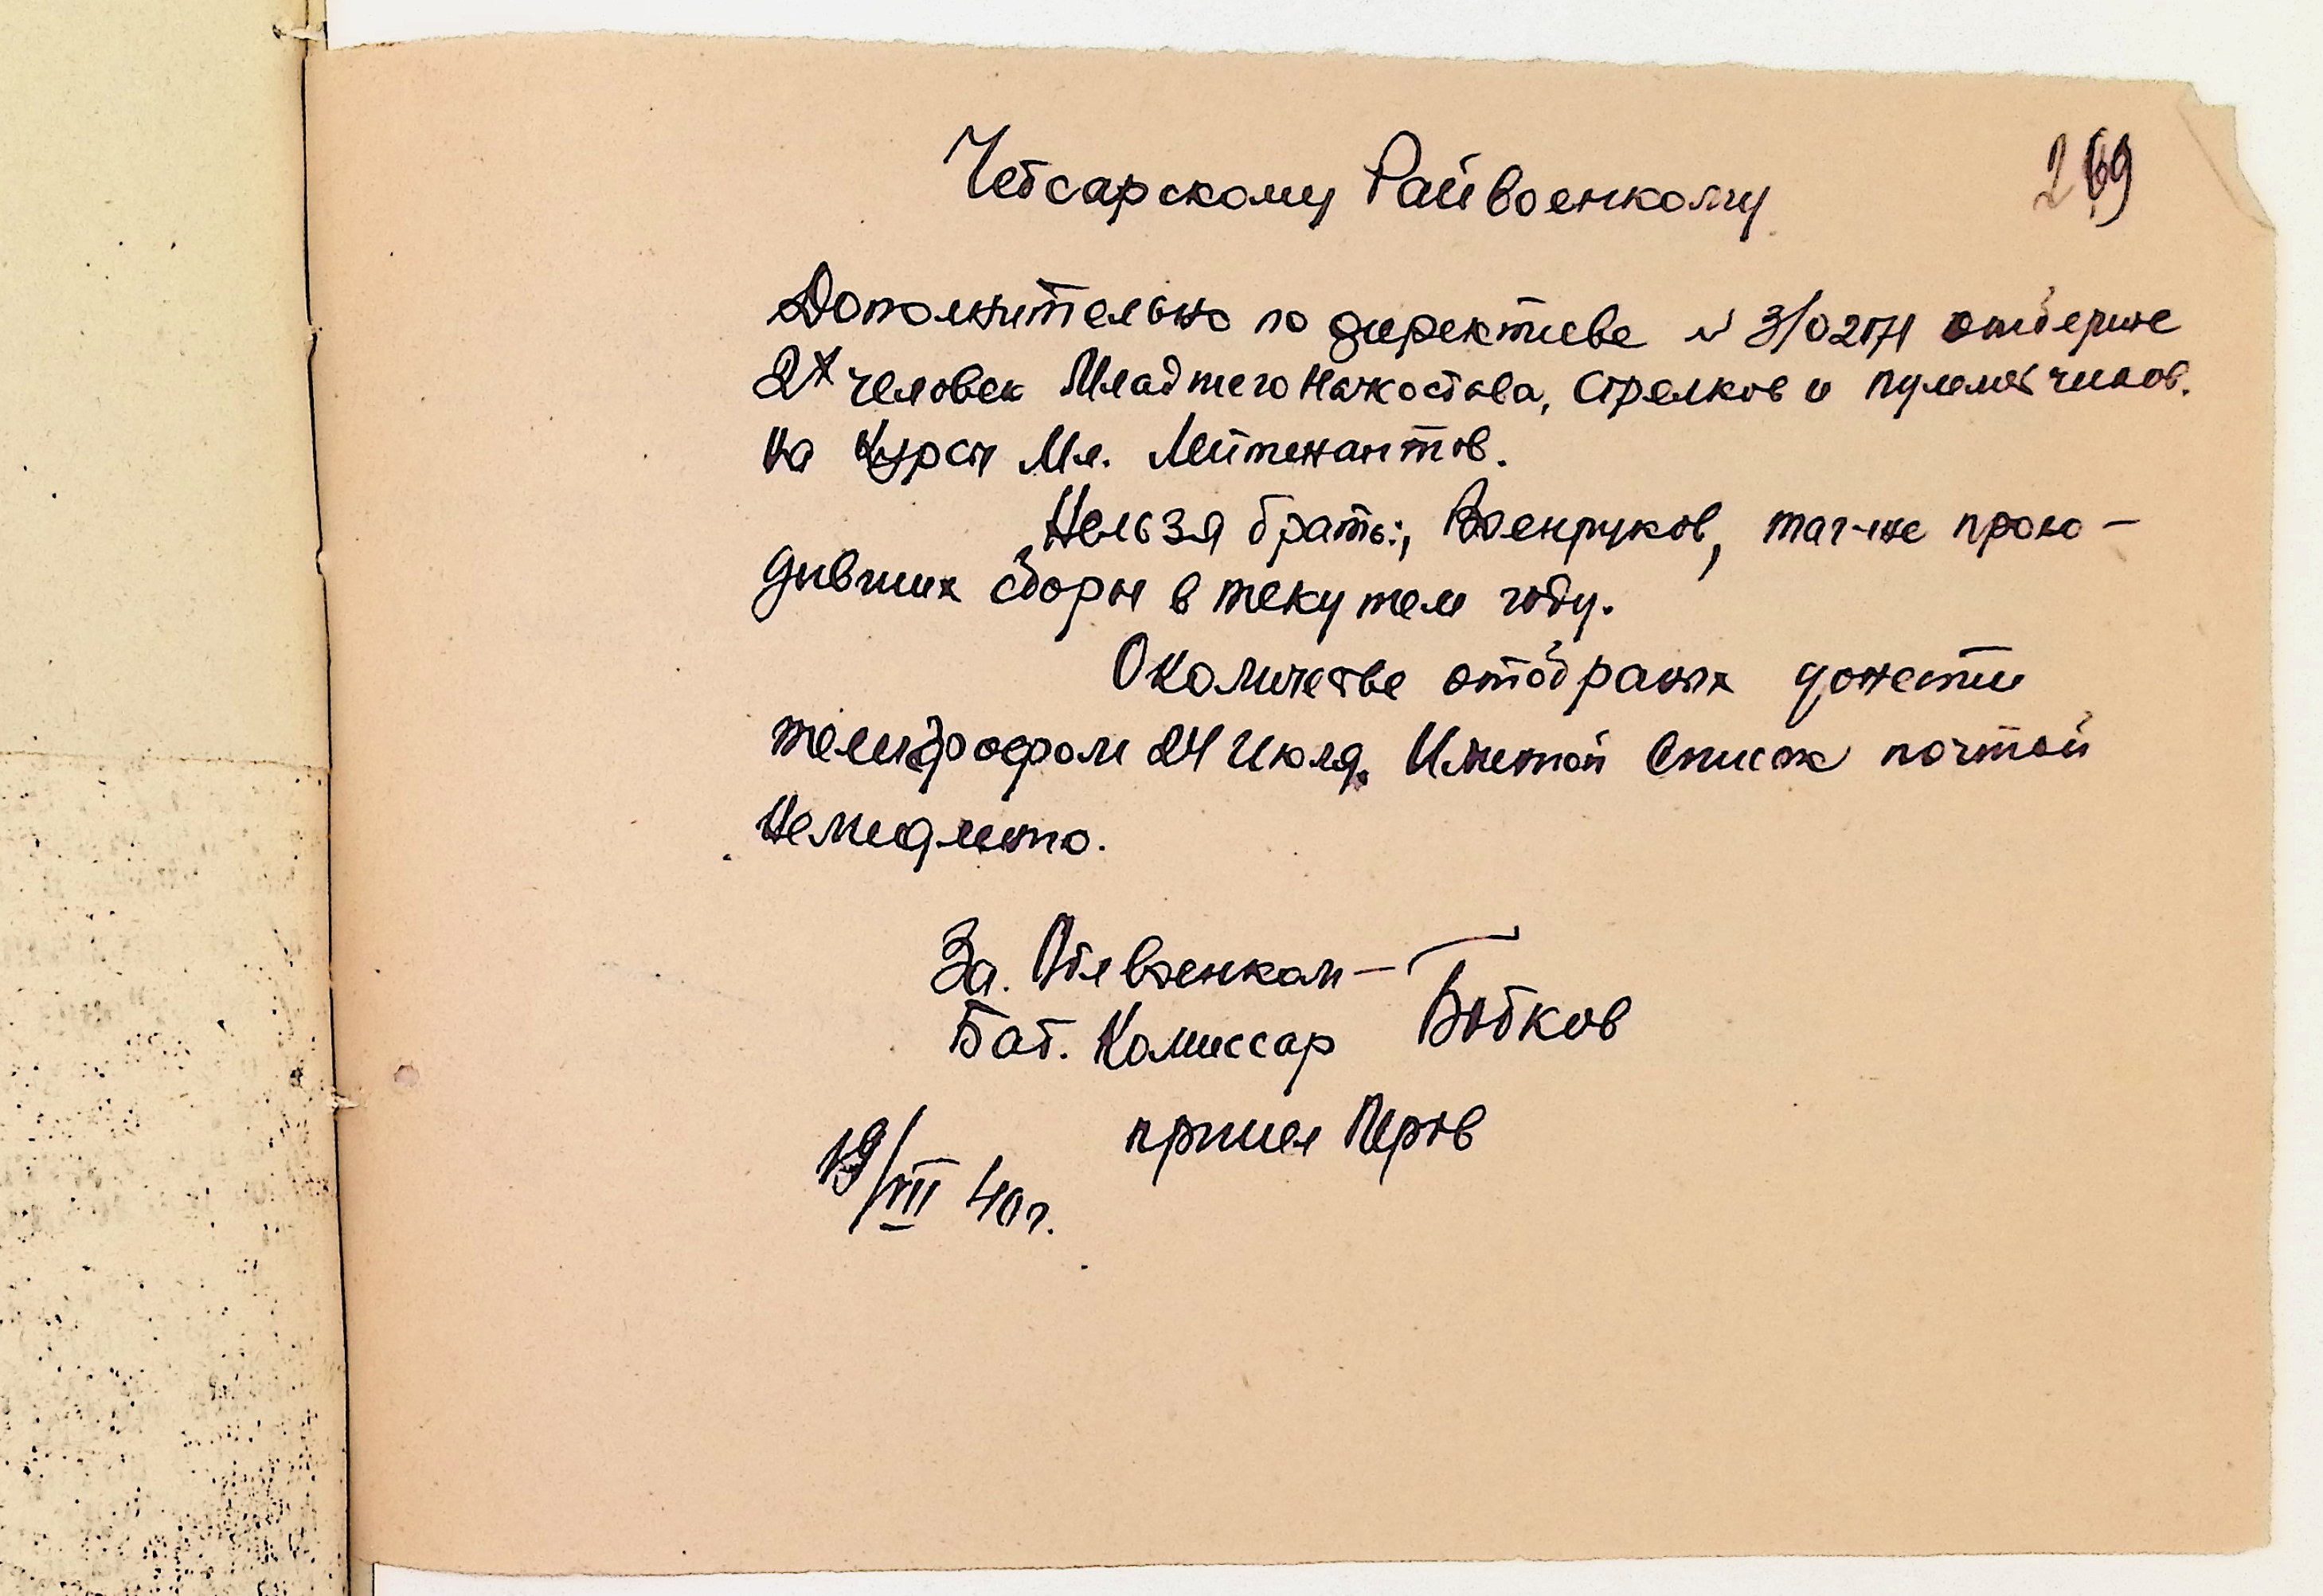 Чебсарскому Райвоенкому
269
Дополнительно по директиве № 3/0271 отберите
2х человек Младшего Начсостава, стрелков и пулеметчиков.
на курсы Мл. Лейтенантов.
Нельзя брать:, Военруков, так-же прохо-
дивших сборы в текущем году.
О количестве отобраных донести
телеграфом 24 Июля. Именной Список почтой
Немедленно.
За. Облвоенком —
Бат. Комиссар Бобков
принял Перов
19/VII 40 г.